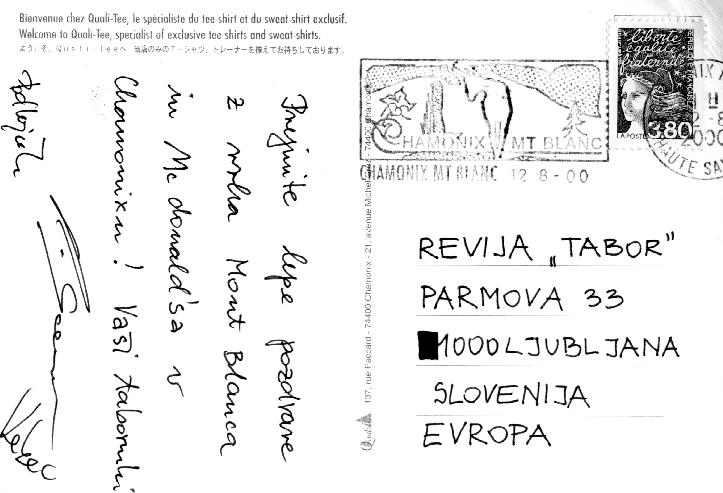 Bienvenue chez Quali-Tee, le spécialiste du tee shirt et du sweat-shirt exclusif.
Welcome to Quali-Tee, specialist of exclusive tee shirts and sweat-shirts.
ようこそ、Quali-Teeへ 当店のみのT-シャツ、トレーナーを揃えてお待ちしております。
Prejmite lepe pozdrave
z vrha Mont Blanca
in Mc donald'sa v
Chamonixu! Vaši taborniki
137, rue Paccard - 74400 Chamonix - 21, avenue Michel
74400 Chamonix
Quali
CHAMONIX MT BLANC
CHAMONIX MT BLANC 12 8-00
liberté
égalité
fraternité
LA POSTE
3,80
2000
HAUTE SA
REVIJA „TABOR"
PARMOVA 33
1000 LJUBLJANA
SLOVENIJA
EVROPA